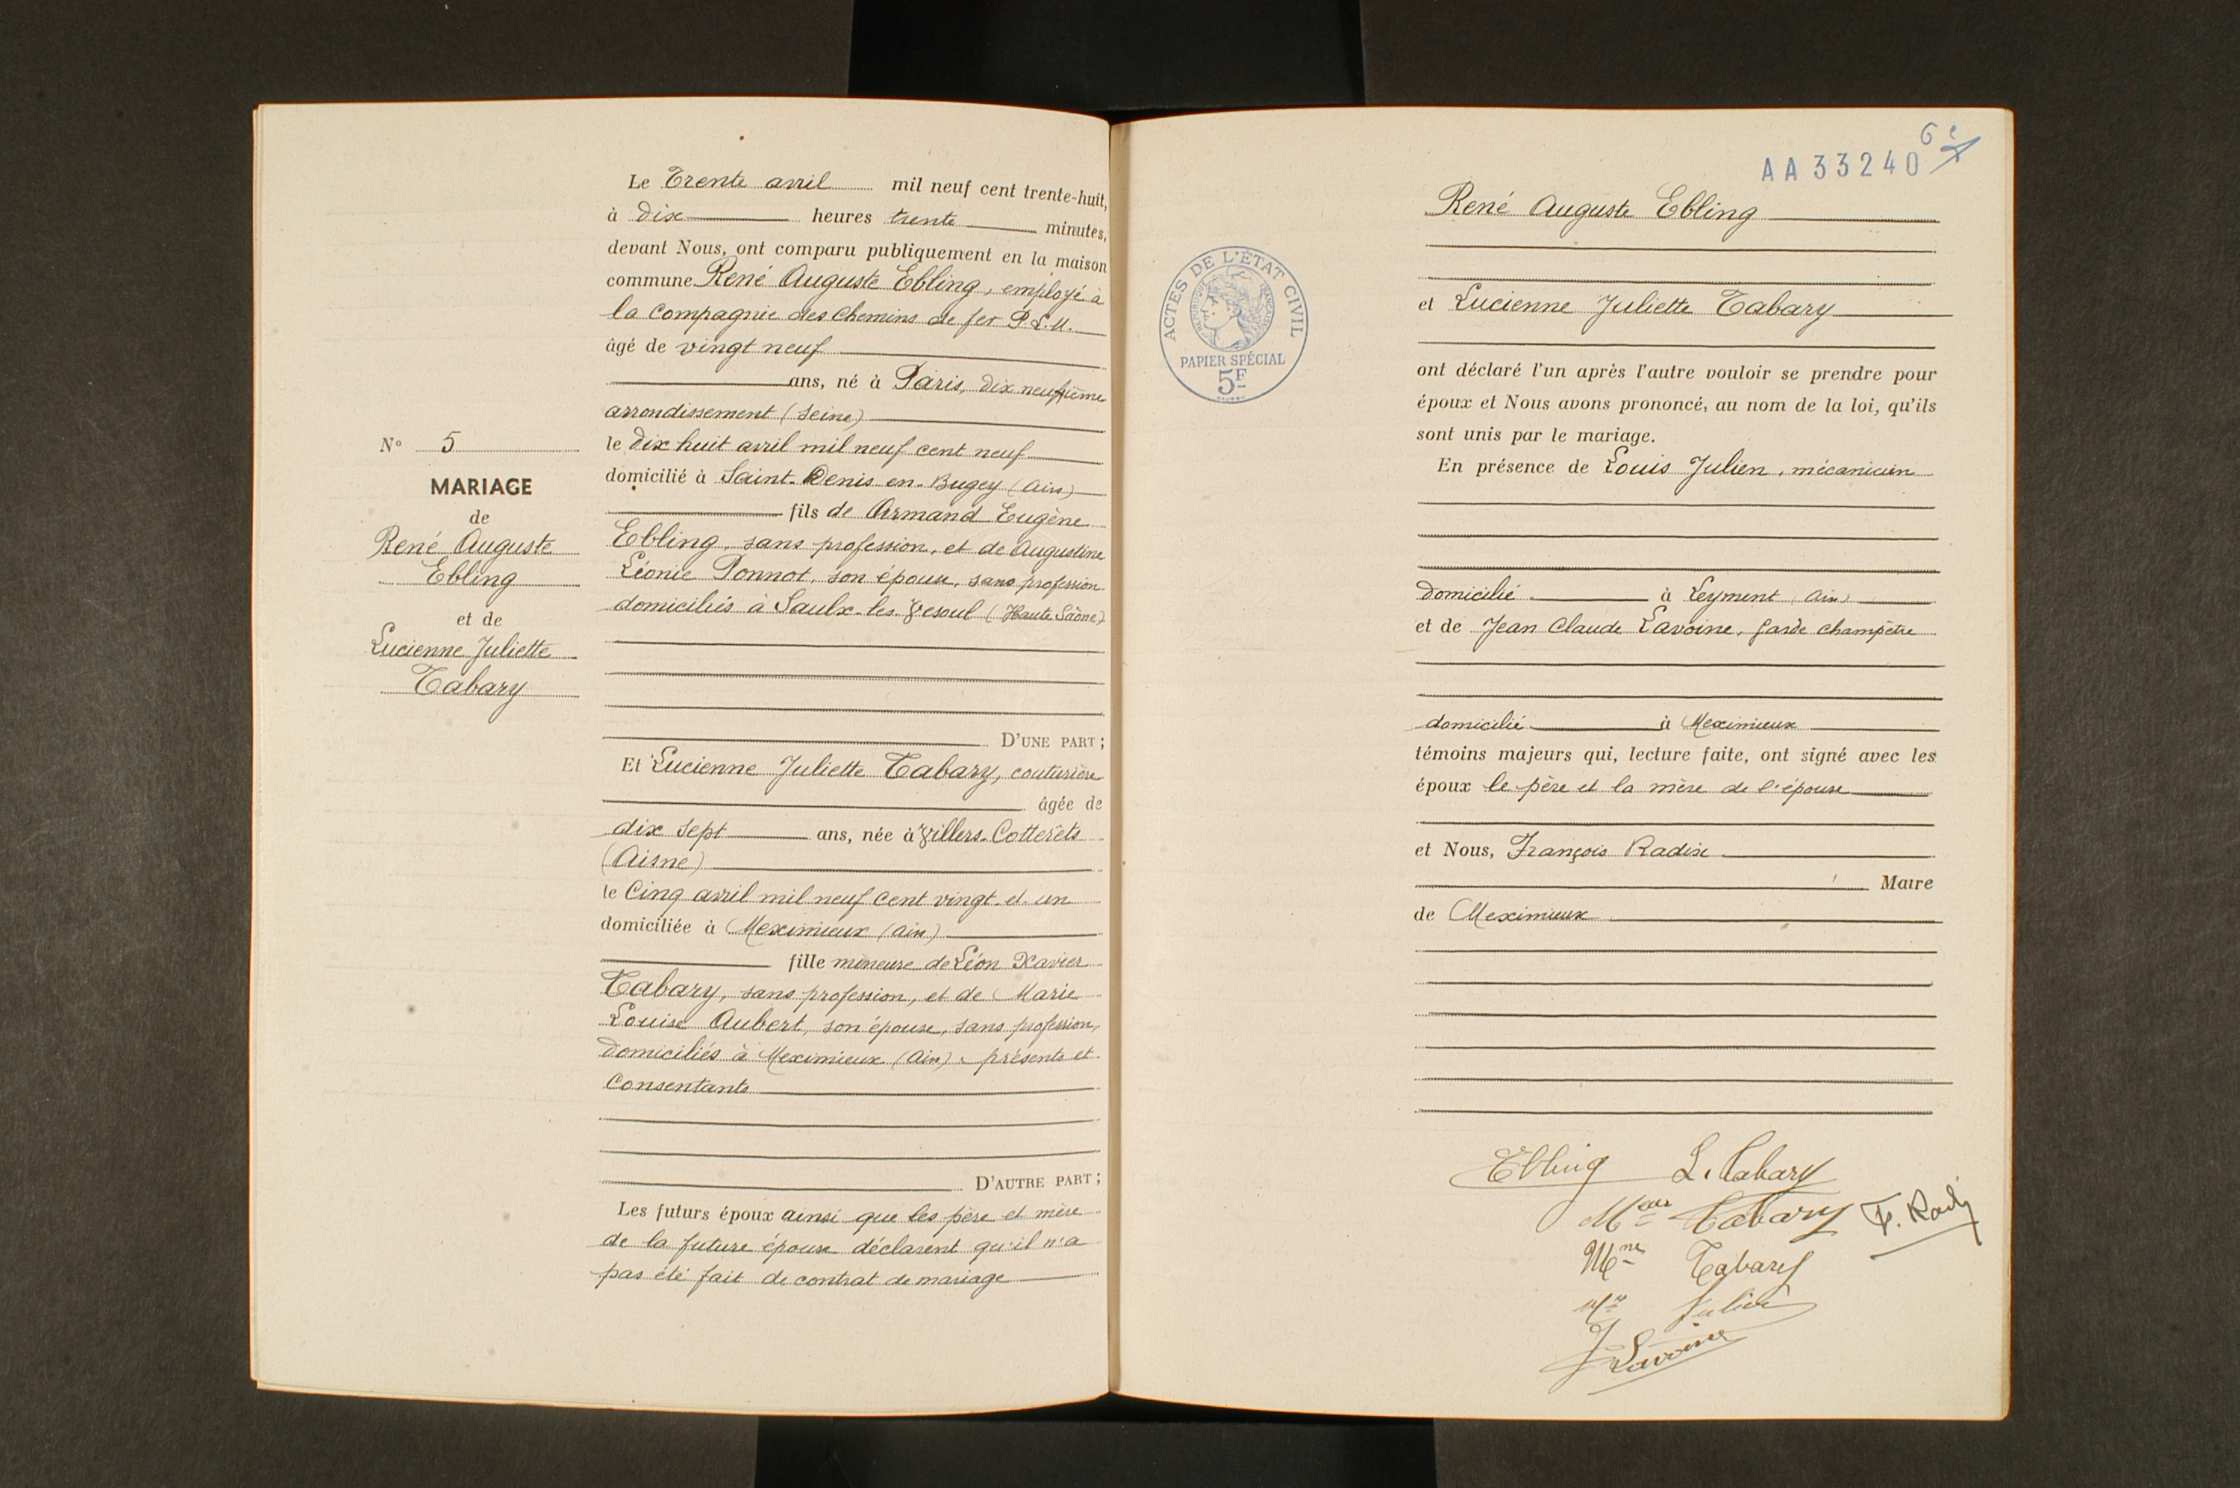 Le Trente avril mil neuf cent trente-huit,
à dix heures trente minutes,
devant Nous, ont comparu publiquement en la maison
commune René Auguste Ebling, employé à
la Compagnie des Chemins de fer P.L.M.
âgé de vingt neuf
ans, né à Paris, dix neuvième
arrondissement (Seine)
le dix huit avril mil neuf cent neuf
domicilié à Saint-Denis-en-Bugey (Ain)
fils de Armand Eugène
Ebling, sans profession, et de Augustine
Léonie Ponnot, son épouse, sans profession
domiciliés à Saulx-les-Vesoul (Haute Saône)
D'UNE PART ;
Et Lucienne Juliette Tabary, couturière
âgée de
dix sept ans, née à Villers-Cotterets
(Aisne)
le Cinq avril mil neuf cent vingt-et-un
domiciliée à Meximieux (Ain)
fille mineure de Léon Xavier
Tabary, sans profession, et de Marie
Louise Aubert, son épouse, sans profession,
domiciliés à Meximieux (Ain), présents et
consentants
D'AUTRE PART ;
Les futurs époux ainsi que les père et mère
de la future épouse déclarent qu'il n'a
pas été fait de contrat de mariage
N° 5
MARIAGE
de
René Auguste
Ebling
et de
Lucienne Juliette
Tabary
AA33240
6e
René Auguste Ebling
et Lucienne Juliette Tabary
ont déclaré l'un après l'autre vouloir se prendre pour
époux et Nous avons prononcé, au nom de la loi, qu'ils
sont unis par le mariage.
En présence de Louis Julien, mécanicien
domicilié à Leyment (Ain)
et de Jean Claude Lavoine, garde champêtre
domicilié à Meximieux
témoins majeurs qui, lecture faite, ont signé avec les
époux le père et la mère de l'épouse
et Nous, François Radix
Maire
de Meximieux
ACTES DE L'ÉTAT CIVIL
RÉPUBLIQUE FRANÇAISE
PAPIER SPÉCIAL
5F
Ebling L. Tabary
Tabary F. Radix
Mme Tabary
Mr Julien
J Lavoine